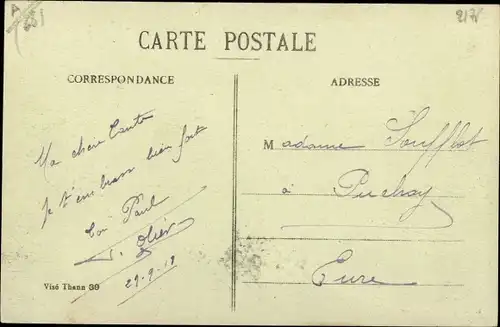 CARTE POSTALE
CORRESPONDANCE
Ma chère Tante
Je t'embrasse bien fort
Ton Paul
29-9-18
Visé Thann 39
ADRESSE
Madame Soufflot
à Puchay
Eure